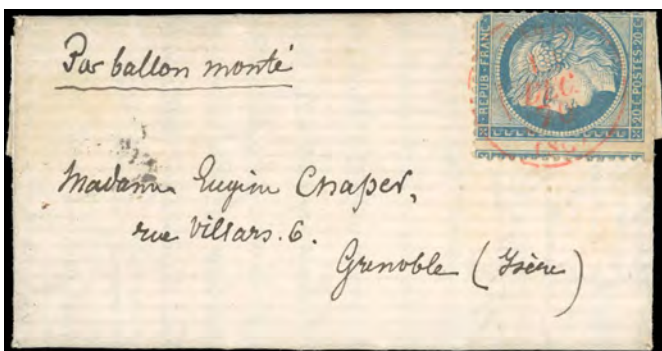 Par ballon monté
REPUB · FRANC
20 C. POSTES · 20 C.
DEC.
(SC)
Madame Eugène Chaper,
rue Villars. 6.
Grenoble (Isère)